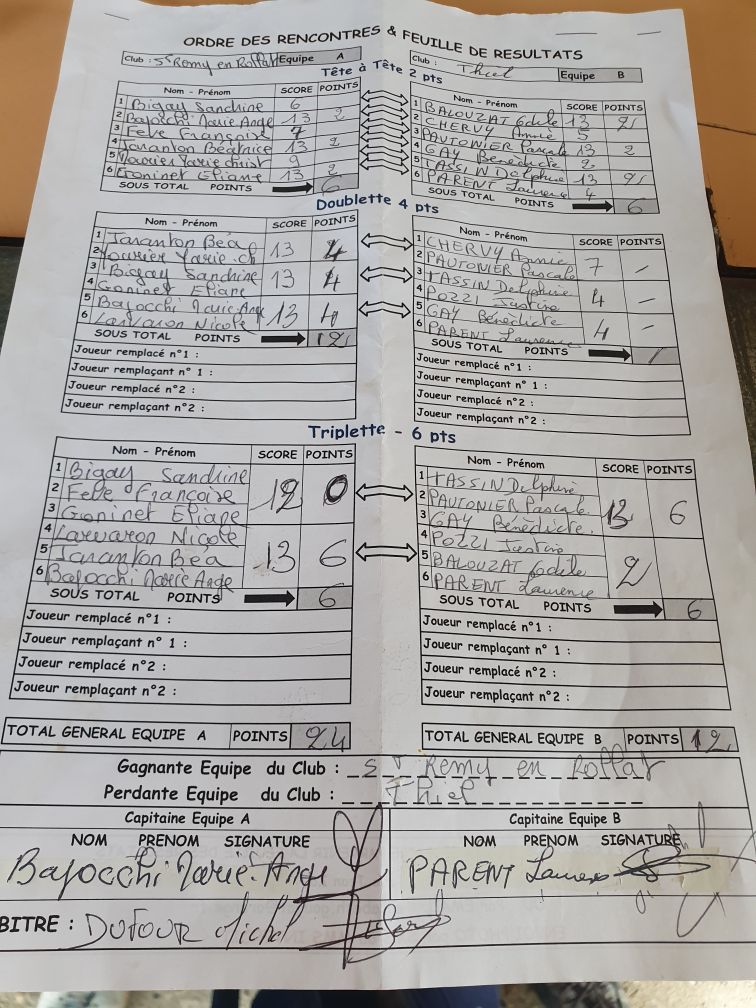 ORDRE DES RENCONTRES & FEUILLE DE RESULTATS
Club : St Remy en Rollat Equipe A
Club : Thiel Equipe B
Tête à Tête 2 pts
Nom - Prénom SCORE POINTS
1 Bigay Sandrine 6
2 Bajocchi Marie Ange 13 2
3 Feve Françoise 7
4 Taranton Béatrice 13 2
5 9
6 Goninet Eliane 13 2
SOUS TOTAL POINTS 6
Nom - Prénom SCORE POINTS
1 BALOUZAT Odile 13 2
2 CHERVY Annie 5
3 PAUTONIER Pascale 13 2
4 GAY Bénédicte 2
5 TASSIN Delphine 13 2
6 PARENT Laurence 4
SOUS TOTAL POINTS 6
Doublette 4 pts
Nom - Prénom SCORE POINTS
1 Taranton Béa 13 4
2
3 Bigay Sandrine 13 4
4 Goninet Eliane
5 Bajocchi Marie Ange 13 4
6 Larvaron Nicole
SOUS TOTAL POINTS 12
Joueur remplacé n°1 :
Joueur remplaçant n° 1 :
Joueur remplacé n°2 :
Joueur remplaçant n°2 :
Nom - Prénom SCORE POINTS
1 CHERVY Annie 7 -
2 PAUTONIER Pascale
3 TASSIN Delphine 4 -
4 POZZI Justine
5 GAY Bénédicte 4 -
6 PARENT Laurence
SOUS TOTAL POINTS /
Joueur remplacé n°1 :
Joueur remplaçant n° 1 :
Joueur remplacé n°2 :
Joueur remplaçant n°2 :
Triplette - 6 pts
Nom - Prénom SCORE POINTS
1 Bigay Sandrine 12 0
2 Feve Françoise
3 Goninet Eliane
4 Larvaron Nicole 13 6
5 Taranton Béa
6 Bajocchi Marie Ange
SOUS TOTAL POINTS 6
Joueur remplacé n°1 :
Joueur remplaçant n° 1 :
Joueur remplacé n°2 :
Joueur remplaçant n°2 :
Nom - Prénom SCORE POINTS
1 TASSIN Delphine 13 6
2 PAUTONIER Pascale
3 GAY Bénédicte
4 POZZI Justine 2
5 BALOUZAT Odile
6 PARENT Laurence
SOUS TOTAL POINTS 6
Joueur remplacé n°1 :
Joueur remplaçant n° 1 :
Joueur remplacé n°2 :
Joueur remplaçant n°2 :
TOTAL GENERAL EQUIPE A POINTS 24
TOTAL GENERAL EQUIPE B POINTS 12
Gagnante Equipe du Club : St Remy en Rollat
Perdante Equipe du Club : Thiel
Capitaine Equipe A
NOM PRENOM SIGNATURE
Bajocchi Marie-Ange
Capitaine Equipe B
NOM PRENOM SIGNATURE
PARENT Laurence
BITRE : DUFOUR Michel